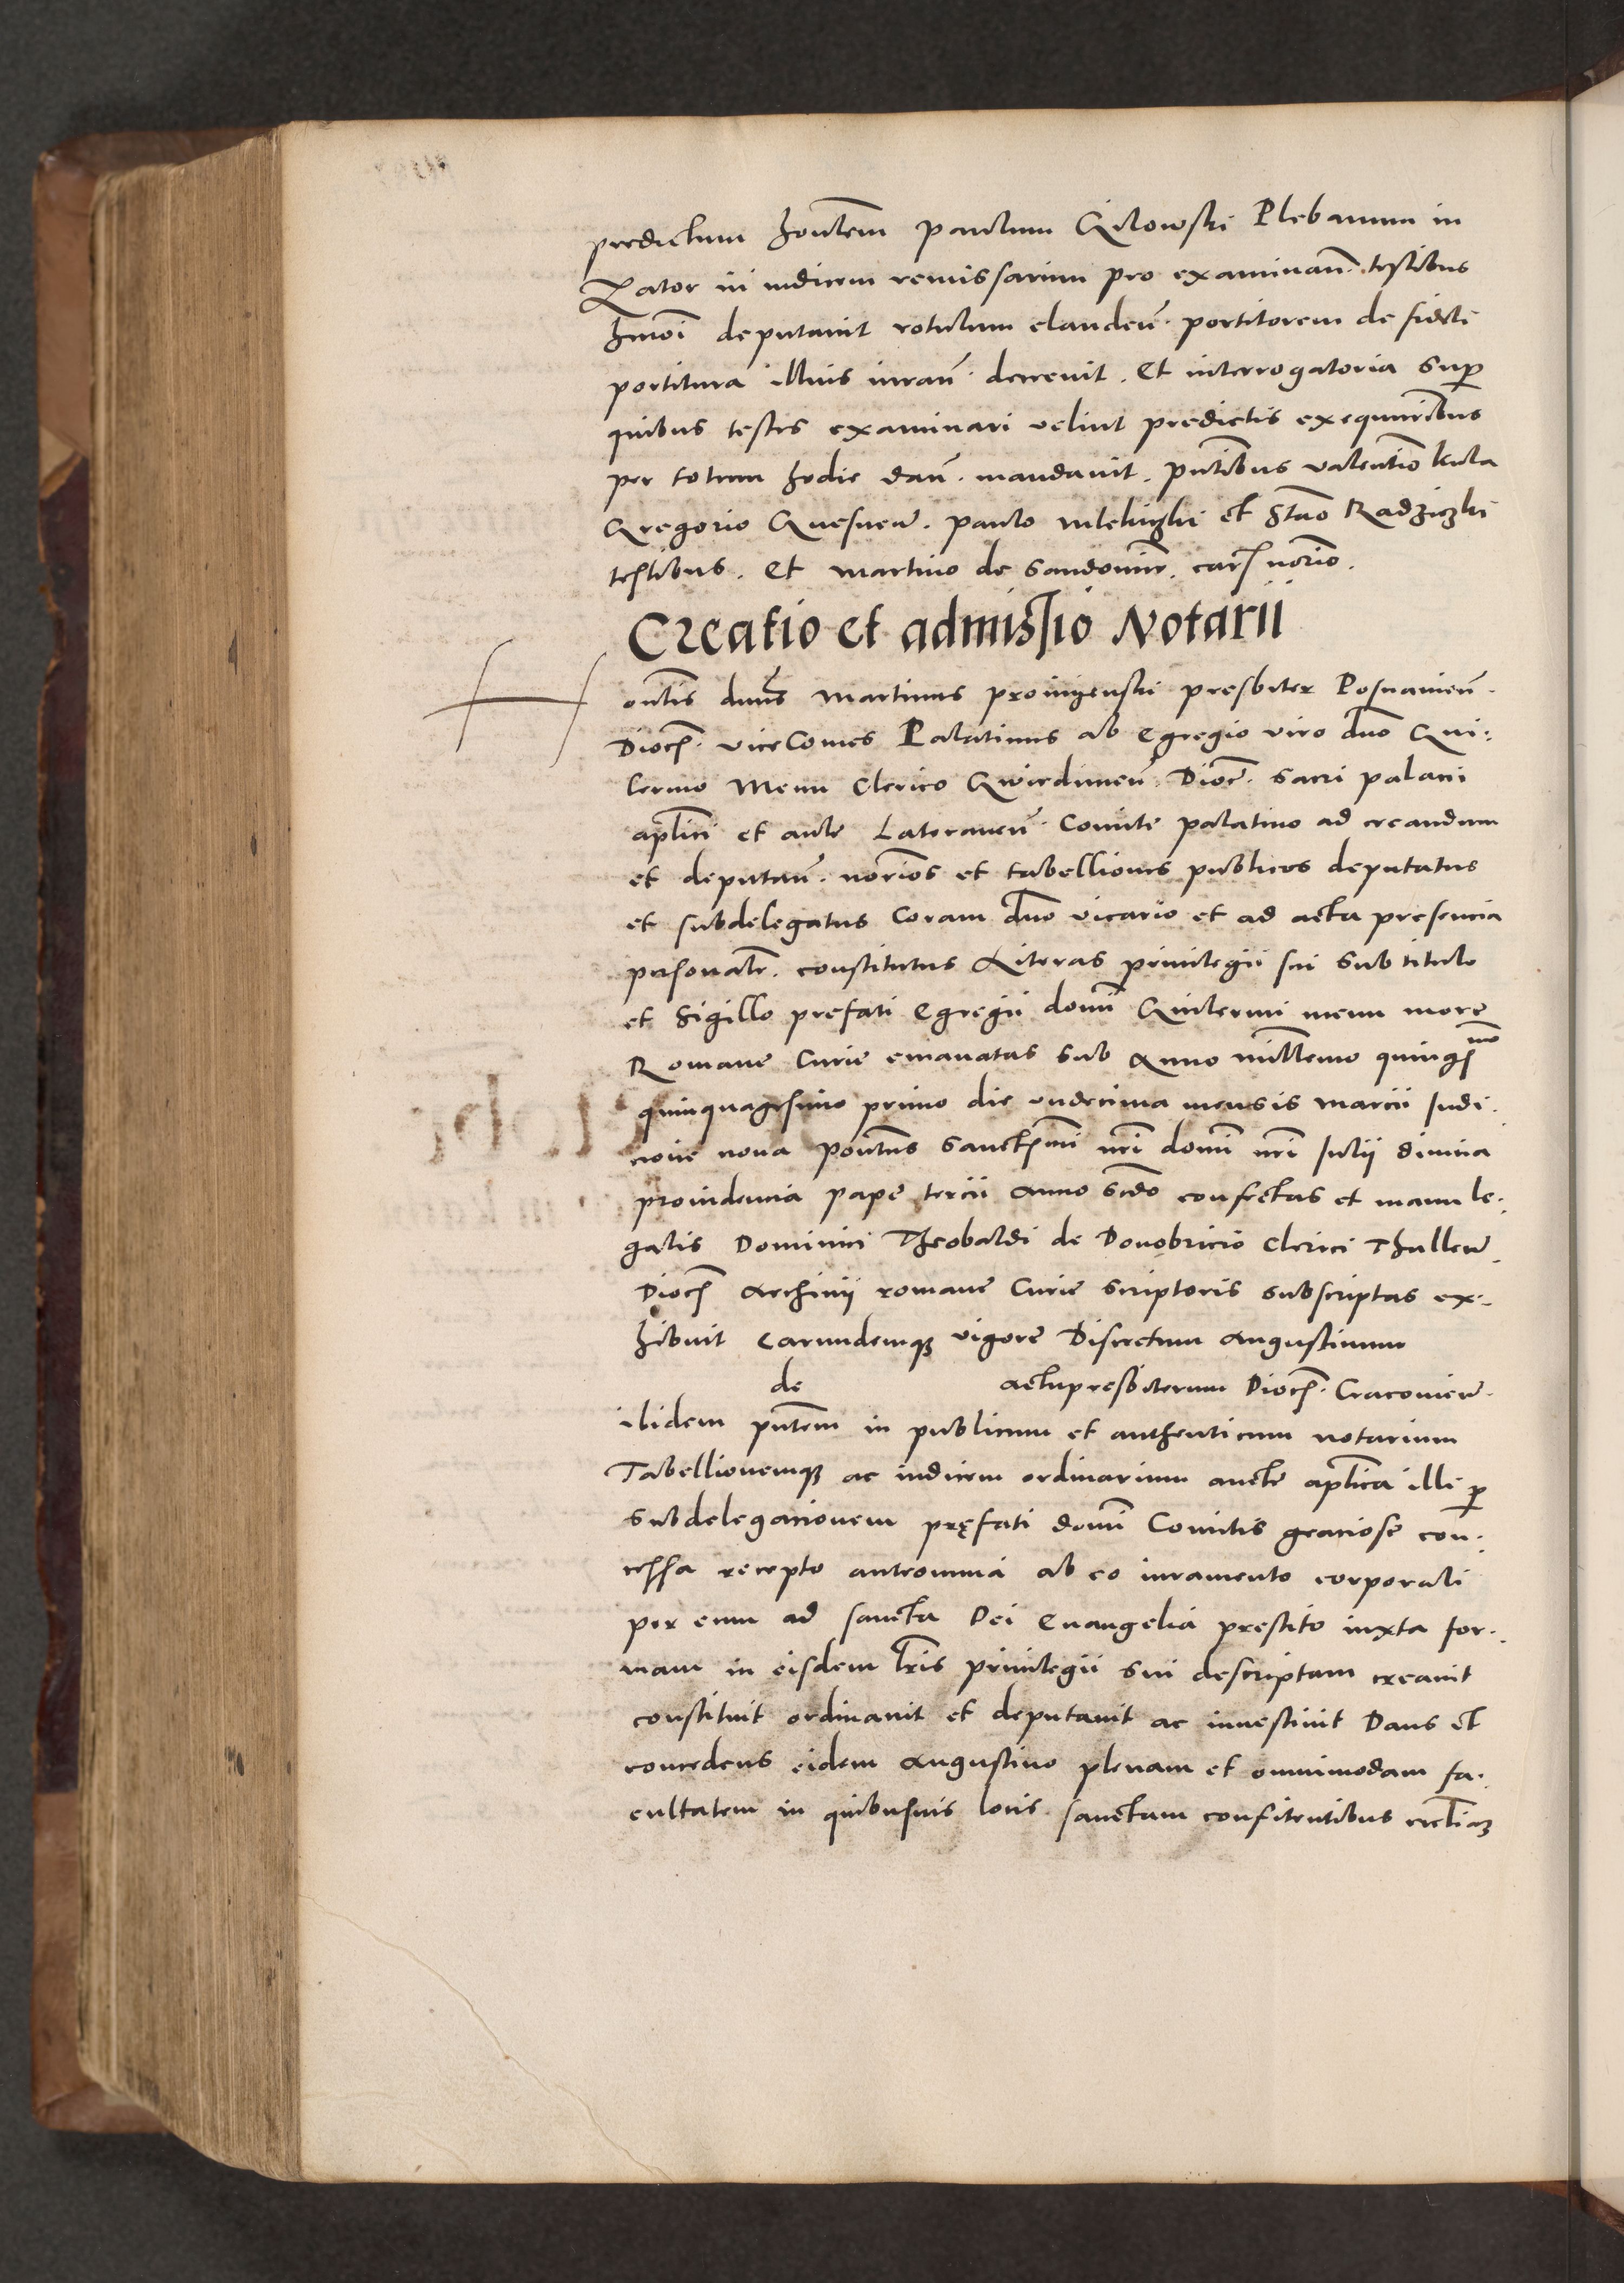 predictum honlem paulum Gilowski Plebanum in
Zator in iudicem remissarium pro examinan. testibus
hmoi deputavit rotulum claudeñ. portitorem de fideli
portitura illius iurañ. decrevit. Et interrogatoria sup
quibus testes examinari velint predictis exequutoribus
per totum hodie dañ. mandavit. pntibus valentino kula
Gregorio paulo et stao Radziczki
testibus. Et martino de Sandomir. caus norio.
Creatio et admissio Notarii
Honlis dnus Martinus presbiter Posnanień.
Dioc. vice Comes Palatinus ab Egregio viro dno Gui-
lermo Menu Clerico Dioc. sacri palacii
aplici et aule Lateraneñ. Comite palatino ad creandum
et deputañ. norios et tabelliones publicos deputatus
et subdelegatus Coram dno vicario et ad acta presencia
psonalr. constitutus Literas privilegii sui sub titulo
et Sigillo prefati Egregii domi Guilermi menu more
Romane Curie emanatas sub Anno millemo quingmo
quinquagesimo primo die undecima mensis marcii Indi-
cione nona pontus sanctmi nri domi nri Iulii divina
providencia pape tercii anno scdo confectas et manu le-
galis Dominici Theobaldi de Donobricio Clerici Thullen.
Dioc Archivii romane Curie scriptoris subscriptas ex-
hibuit Earundemque vigore Discretum Augustinum
de actu presbiterum Dioc. Cracovien.
ibidem pntem in publicum et authenticum notarium
Tabellionemque ac iudicem ordinarium aucte aplica illi p
subdelegacionem pręfati domi Comitis graciose con-
cessa recepto anteomnia ab eo iuramento corporali
per eum ad sancta Dei Evangelia prestito iuxta for-
mam in eisdem lris privilegii sui descriptam creavit
constituit ordinavit et deputavit ac investivit Dans et
concedens eidem Augustino plenam et omnimodam fa-
cultatem in quibusvis locis sanctam confitentibus eccliam